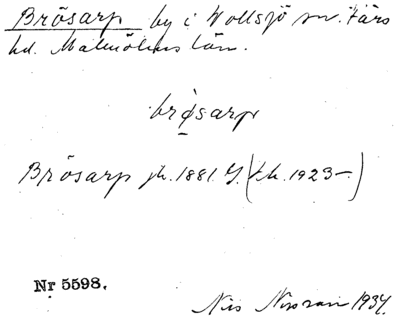 Brösarp by i Wollsjö sn. Färs
hd. Malmöhus län.
brøsarp
Brösarp jh. 1881 G. (th. 1923-)
Nr 5598.
Nis Nissson 1934.